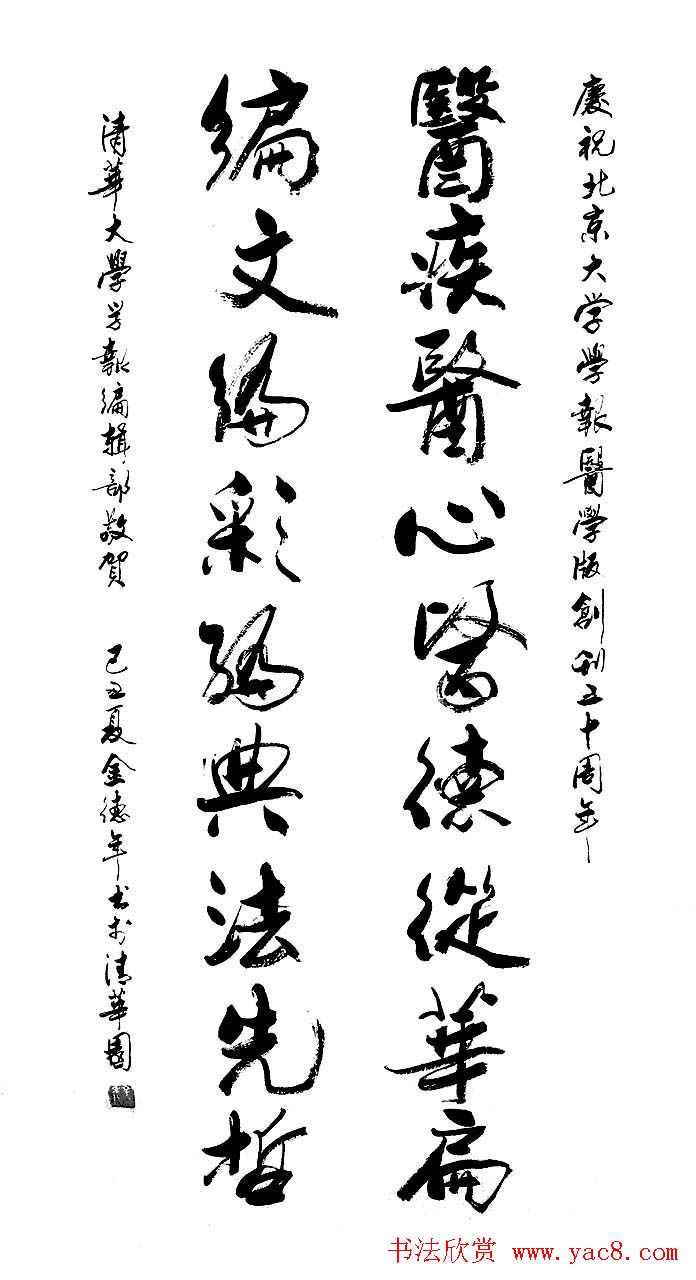 慶祝北京大学學報醫學版創刊五十周年
醫疾醫心醫德從華扁
編文編彩編典法先哲
清華大學学報編輯部敬賀 己丑夏金德年书於清華園
书法欣赏 www.yac8.com